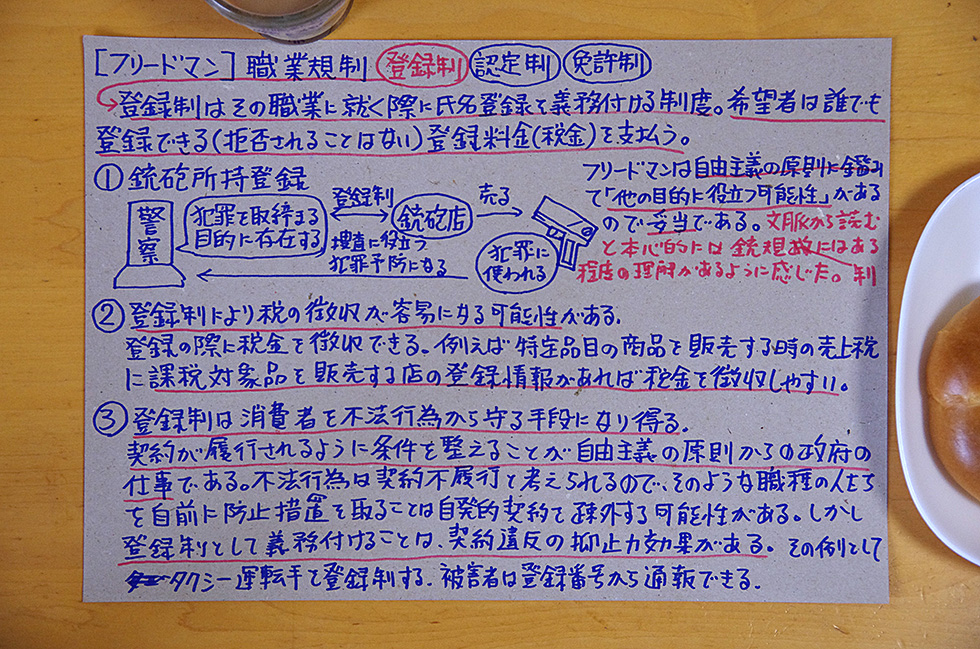 [フリードマン] 職業規制 登録制 認定制 免許制
登録制はその職業に就く際に氏名登録を義務付ける制度。希望者は誰でも
登録できる(拒否されることはない)登録料金(税金)を支払う。
① 銃砲所持登録
警察
犯罪を取締まる
目的に存在する
登録制
銃砲店
売る
捜査に役立つ
犯罪予防になる
犯罪に
使われる
フリードマンは自由主義の原則に鑑み
て「他の目的に役立つ可能性」がある
ので妥当である。文脈から読む
と本心的には銃規にはある
程度の理解があるように感じた。 制
② 登録制により税の徴収が容易になる可能性がある。
登録の際に税金を徴収できる。例えば特定品目の商品を販売する時の売上税
に課税対象品を販売する店の登録情報があれば税金を徴収しやすい。
③ 登録制は消費者を不法行為から守る手段になり得る。
契約が履行されるように条件を整えることが自由主義の原則からの政府の
仕事である。不法行為は契約不履行と考えられるので、そのような職種の人たち
を自前に防止措置を取ることは自発的契約を疎外する可能性がある。しかし
登録制として義務付けることは、契約違反の抑止力効果がある。その例として
タクシー運転手を登録制する。被害者は登録番号から通報できる。